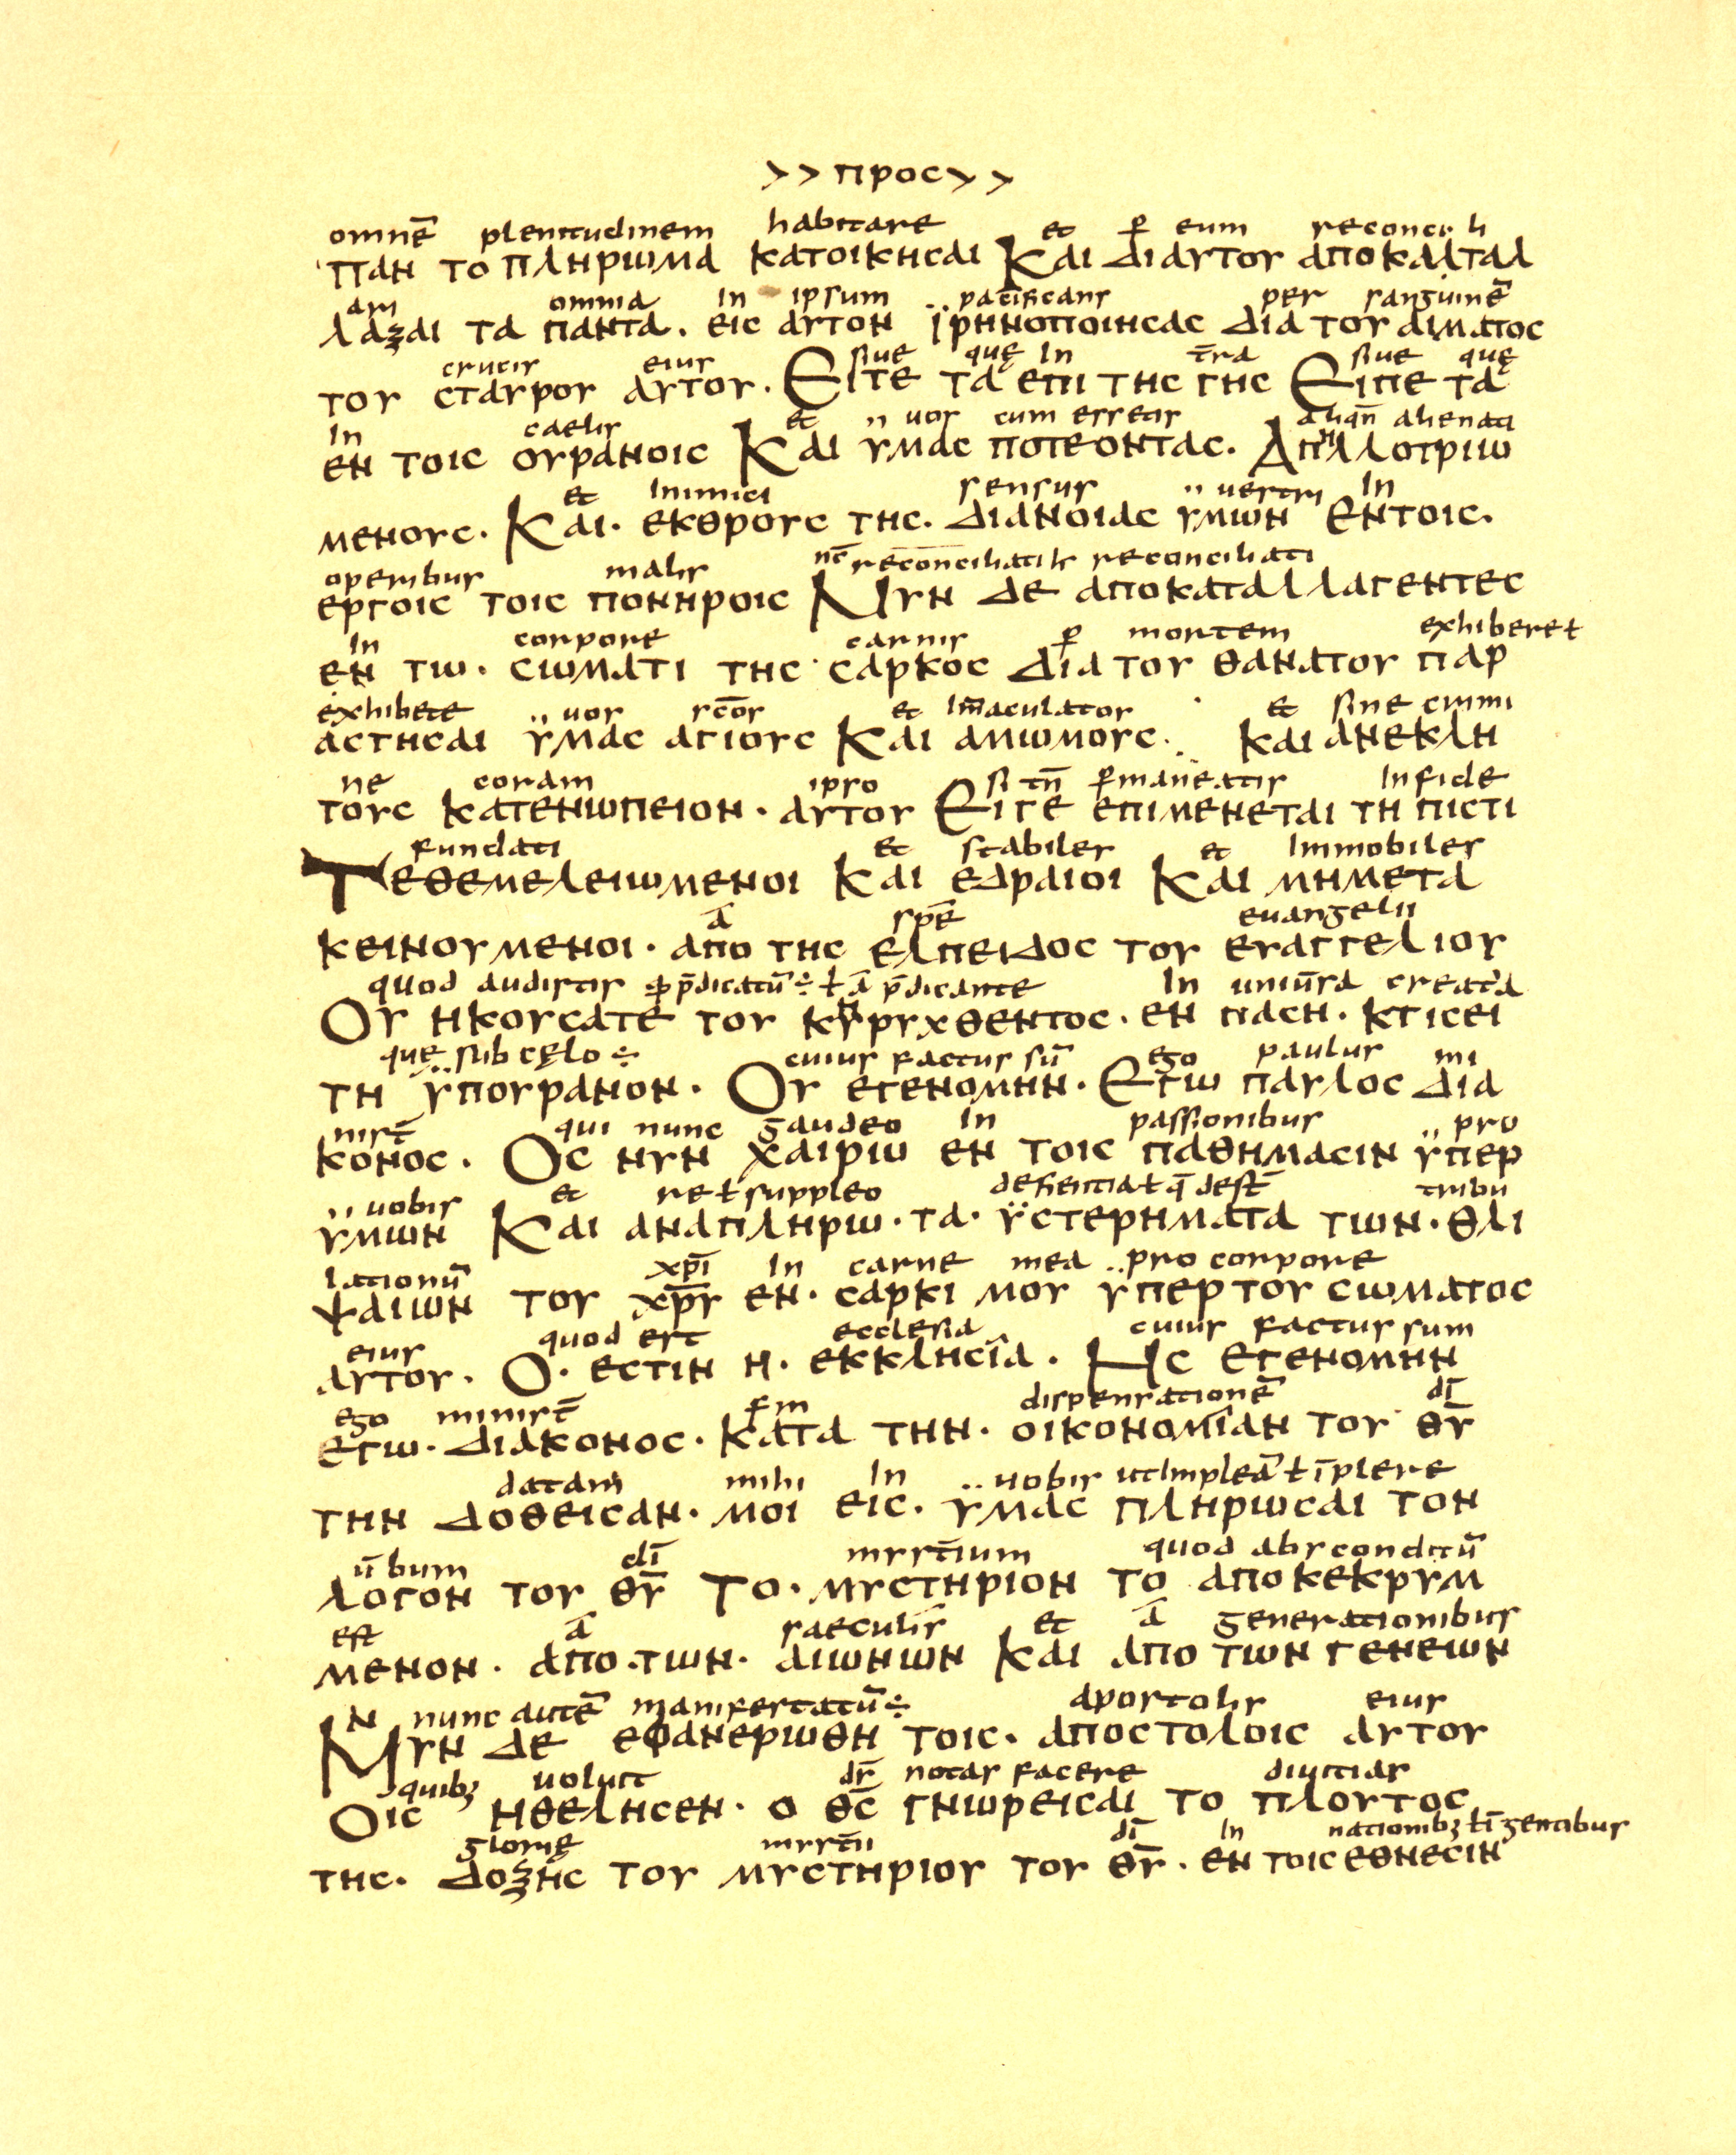 >> προς >>
omnē plenitudinem habitare et p̄ eum reconcili
παν το πληρωμα κατοικησαι Και διαυτου αποκαλταλ
ari omnia in ipsum pacificans per sanguinē
λαξαι τα παντα. εις αυτον ϊρηνοποιησας δια του αιματος
crucis eius. siue quę in t̄ra siue quę
του σταυρου αυτου. Ειτε τα επι της γης Ειπε τα
in caelis et uos cum essetis aliqn̄ alienati
εν τοις ουρανοις Και ϋμας ποτεοντας. Απηλλοτριω
et inimici sensus uestri in
μενους. Και. εκθρους της. διανοιας ϋμων εντοις.
operibus malis nc̄ reconciliati ł reconciliati
εργοις τοις πονηροις Νυν δε αποκαταλλαγεντες
in corpore carnis p̄ mortem exhiberet
εν τω. σωματι της σαρκος δια του θανατου παρ
exhibete uos sc̄os et im̄aculatos et sine crimi
αστησαι ϋμας αγιους Και αμωμους. και ανεκλη
ne coram ipso si tn̄ p̄manēatis in fide
τους κατενωπειον. αυτου Ειγε επιμενεται τη πιστι
fundati et stabiles et immobiles
Τεθεμελειωμενοι Και εδραιοι Και μημετα
ā spē euangelii
κεινουμενοι. απο της ελπειδος του ευαγγελιου
quod audistis qp p̄dicatū ÷ ł ā p̄dicante in uniūsa creata
Ου ηκουσατε του κηρυχθεντος. εν παση. κτισει
que sub cęlo ÷ cuius factus sū ego paulus mi
τη ϋπουρανον. Ου εγενομην. Εγω παυλος δια
nist̄ qui nunc gaudeo in passionibus pro
κονος. Ος νυν χαιριω εν τοις παθημασιν ϋπερ
uobis et re ł suppleo deficientia ł q̄ desť tribu
ϋμων Και αναπληρω. τα. ϋστερηματα των. θλι
lationū xp̄i in carne mea pro corpore
ψαιων του χρ̄υ εν. σαρκι μου ϋπερ του σωματος
eius quod est ecclesia cuius factus sum
αυτου. Ο. εστιν η. εκκλησϊα. Ης εγενομην
ego minist̄ s̄m dispensationē dī
εγω. διακονος. Κατα την. οικονομϊαν του θ̄υ
datam mihi in uobis ut impleā ł īplere
την δοθεισαν. μοι εις. ϋμας πληρωσαι τον
ūbum dī myst̄ium quod absconditū
λογον του θ̄υ Το. μυστηριον το αποκεκρυμ
est ā saeculis et ā generationibus
μενον. απο.των. αιωνιων Και απο των γενεων
Ν nunc autē manifestatū ÷ apostolis eius
Μυν δε εφανεριωθη τοις. αποστολοις αυτου
quibȝ uoluit ds̄ notas facere diuitias
Οις ηθελησεν. ο θ̄ς γνωρεισαι το πλουτος
glorię myst̄ii dī in nationibȝ ł ī gentibus
της. δοξης του μυστηριου του θ̄υ. εν τοις εθνεσιν